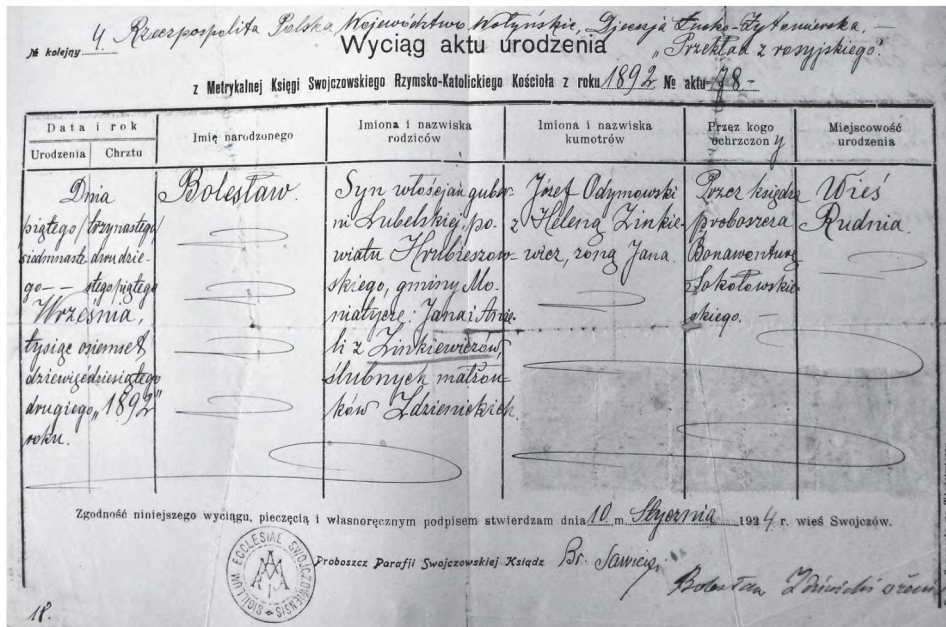 № kolejny 4. Rzeczpospolita Polska, Województwo Wołyńskie, Djecezja Łucko-Żytomierska. —
Wyciąg aktu urodzenia
„Przekład z rosyjskiego“.
z Metrykalnej Księgi Swojczowskiego Rzymsko-Katolickiego Kościoła z roku 1892 № aktu 78-
Data i rok
Urodzenia
Chrztu
Imię narodzonego
Imiona i nazwiska
rodziców
Imiona i nazwiska
kumotrów
Przez kogo
ochrzczony
Miejscowość
urodzenia
Dnia
piątego/trzynastego
siedmnaste dwudzie-
go-- stego piątego
Września,
tysiąc osiemset
dziewięćdziesiątego
drugiego „1892“
roku.
Bolesław.
Syn włościan guber-
ni Lubelskiej, po-
wiatu Hrubieszow-
skiego, gminy Mo-
niatycze: Jana i Anie-
li z Zinkiewiczów,
ślubnych małżon-
ków Zdzienickich.
Józef Odymowski
z Heleną Zinkie-
wicz, żoną Jana.
Przez księdza
proboszcza
Bonawenturę
Sokołowskie
skiego. —
Wieś
Rudnia.
Zgodność niniejszego wyciągu, pieczęcią i własnoręcznym podpisem stwierdzam dnia 10 m. Stycznia 1924 r. wieś Swojczów.
Proboszcz Parafii Swojczowskiej Ksiądz Br.
SIGILLUM ECCLESIAE SWOJCZOVIENSIS
Bolesław
18.